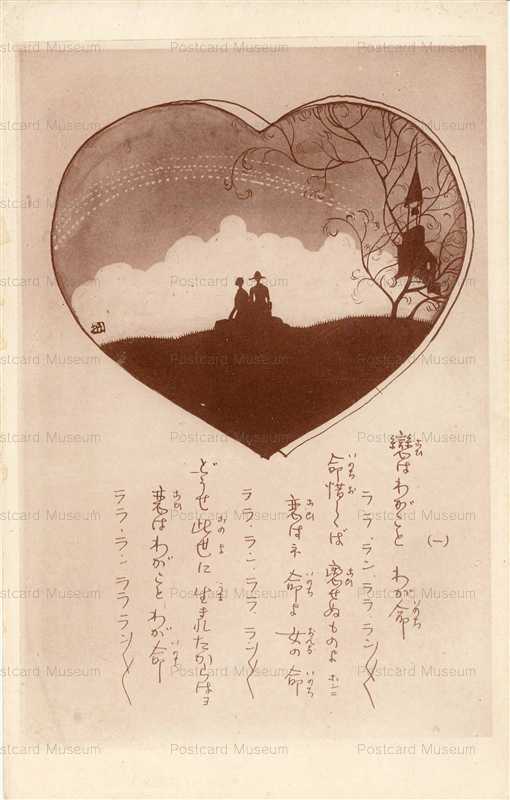 Postcard Museum
(一)
戀はわがこと わが命
ララ.ラン.ララ.ラン〳〵
命惜しくば 戀せぬものよ ホンニ
恋はネ 命よ 女の命
ララ.ラン.ララ ラン〳〵
どうせ此世に 生まれたからはヨ
恋はわがこと わが命
ララ.ラン ララ ラン〳〵